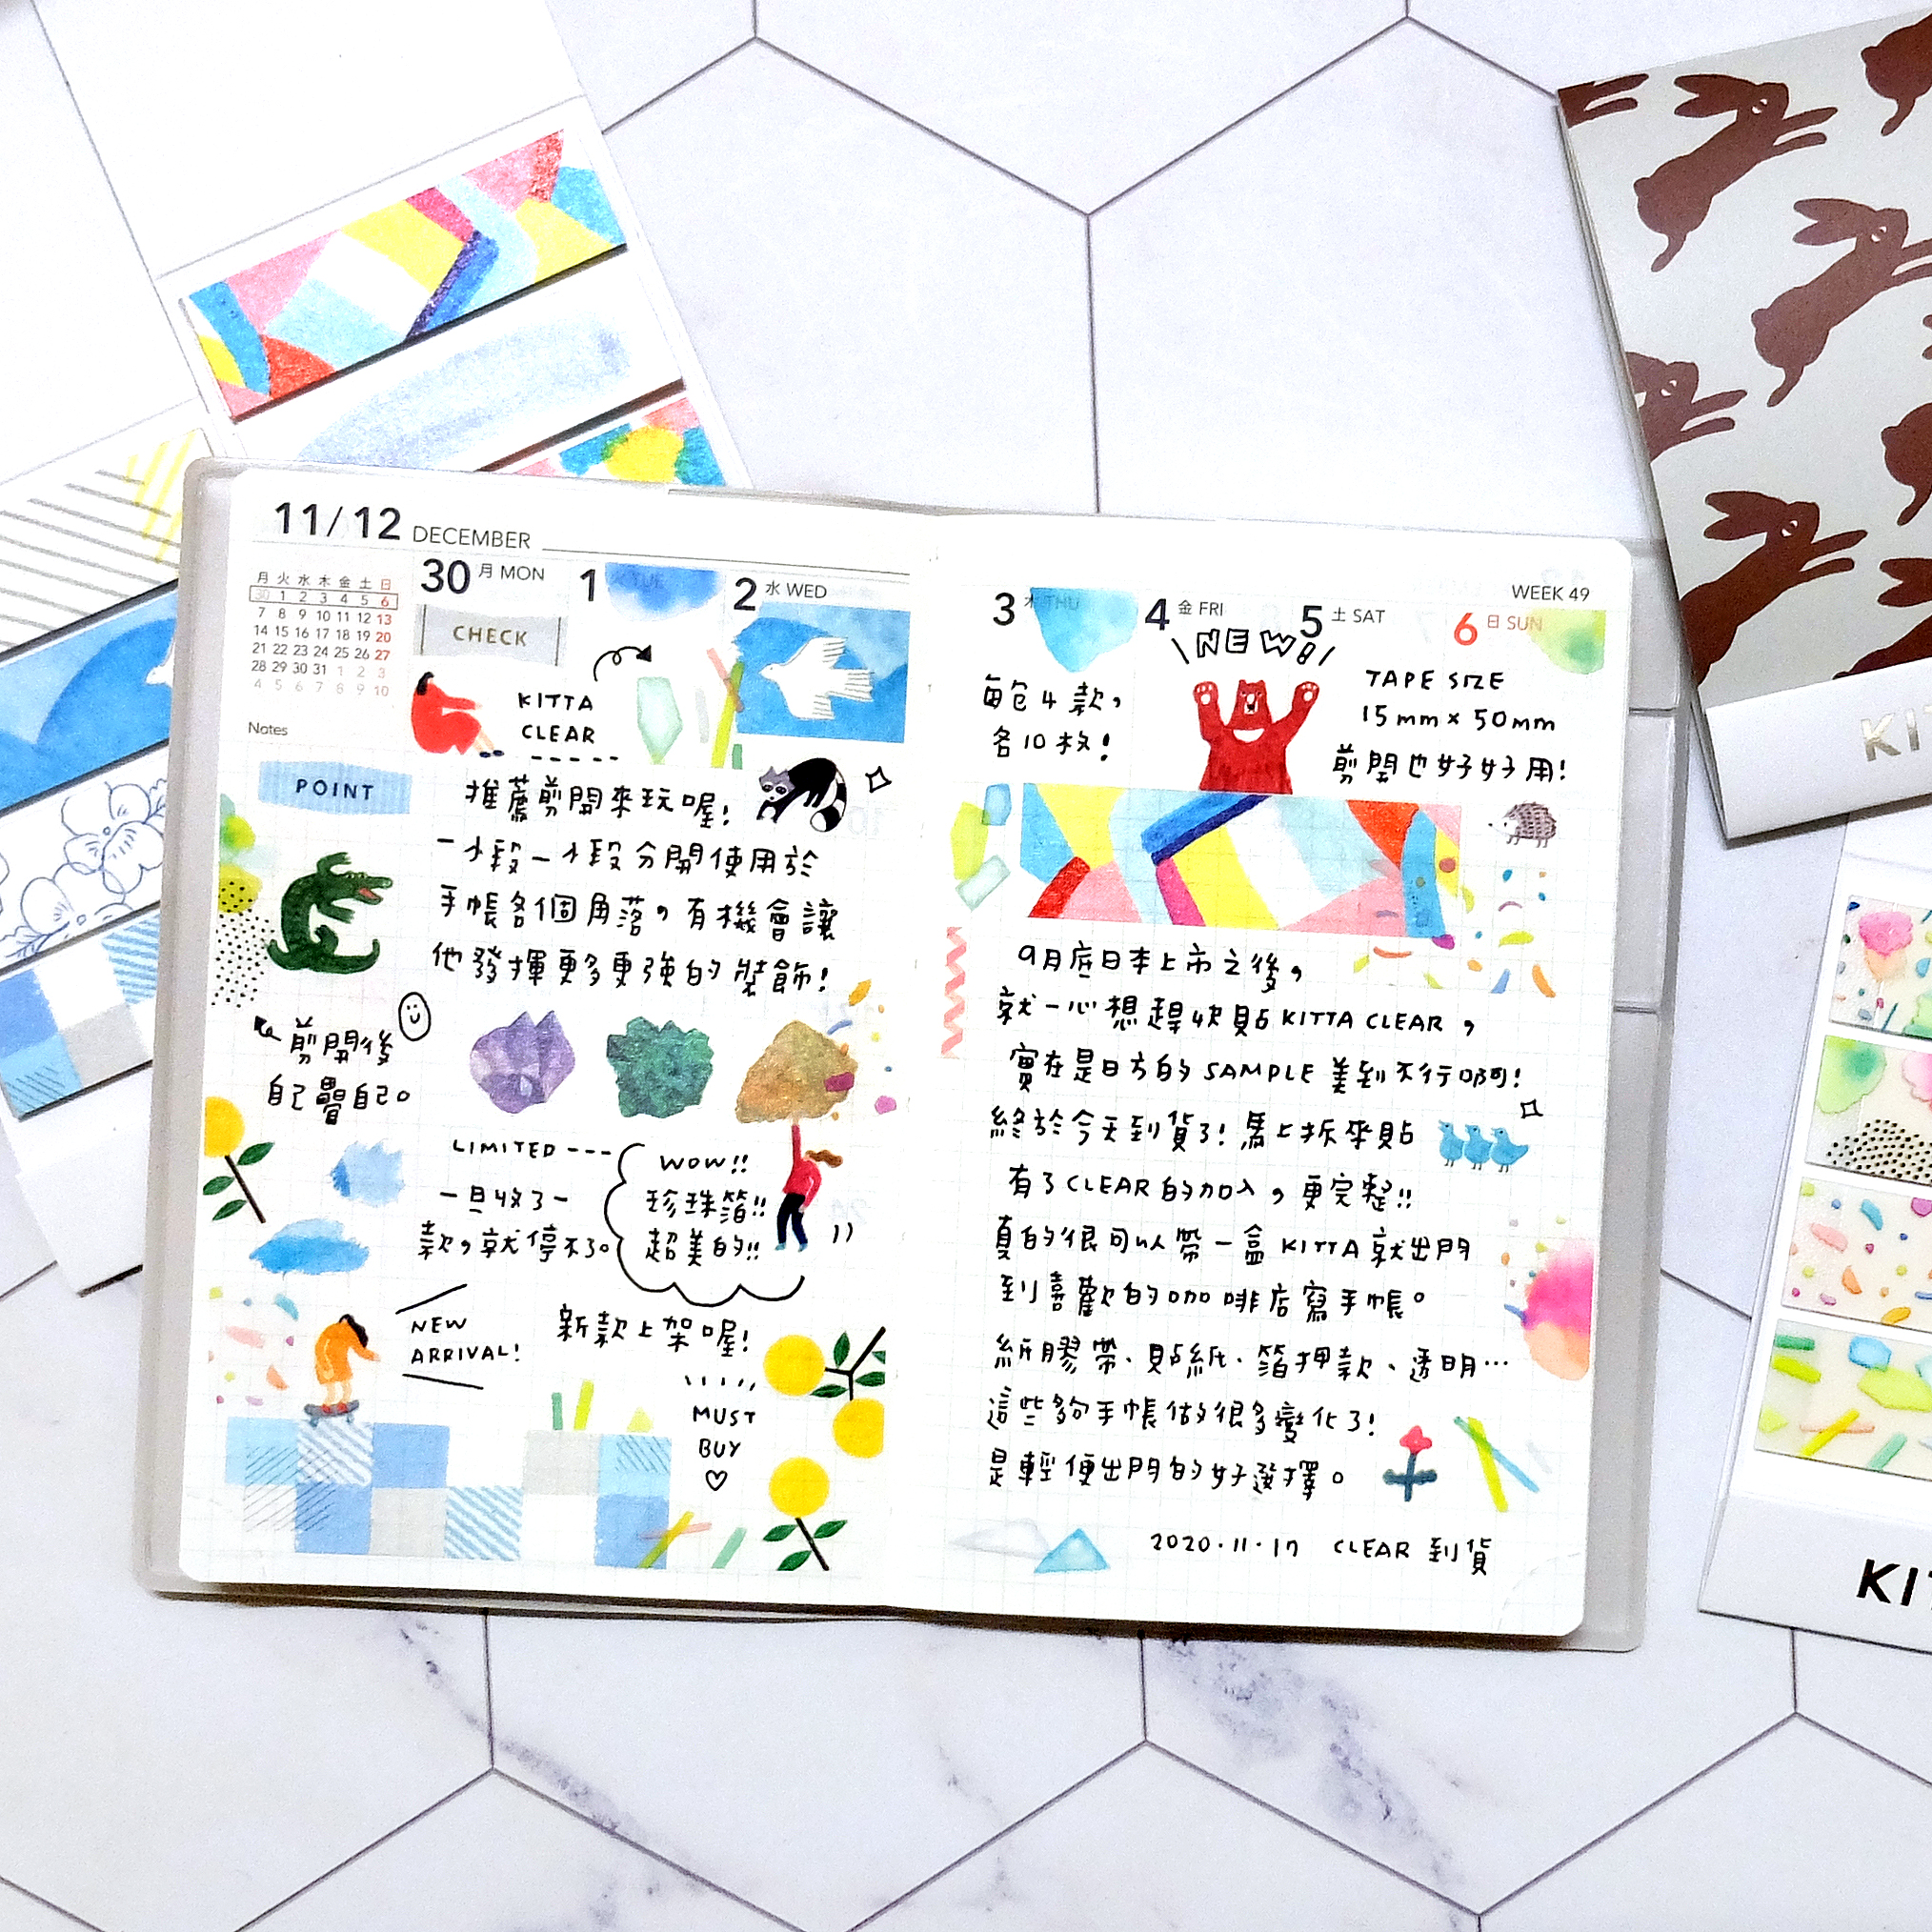 11/12 DECEMBER
月 火 水 木 金 土 日
30 1 2 3 4 5 6
7 8 9 10 11 12 13
14 15 16 17 18 19 20
21 22 23 24 25 26 27
28 29 30 31 1 2 3
4 5 6 7 8 9 10
Notes
30 月 MON
1 TUE
2 水 WED
CHECK
KITTA
CLEAR
POINT
推薦剪開來玩喔!
一小段一小段分開使用於
手帳各個角落,有機會讓
他發揮更多更強的裝飾!
剪開後
自己疊自己。
LIMITED
一旦收了一
款,就停不了。
WOW!!
珍珠箔!!
超美的!!
NEW
ARRIVAL!
新款上架喔!
MUST
BUY
WEEK 49
3 木 THU
4 金 FRI
5 土 SAT
6 日 SUN
NEW!
每包4款,
各10枚!
TAPE SIZE
15mm×50mm
剪開也好好用!
9月底日本上市之後,
就一心想趕快貼KITTA CLEAR,
實在是日方的SAMPLE美到不行啊!
終於今天到貨了!馬上拆來貼
有了CLEAR的加入,更完整!!
真的很可以帶一盒KITTA就出門
到喜歡的咖啡店寫手帳。
紙膠帶、貼紙、箔押款、透明…
這些夠手帳做很多變化了!
是輕便出門的好選擇。
2020.11.17 CLEAR 到貨
KI
KI